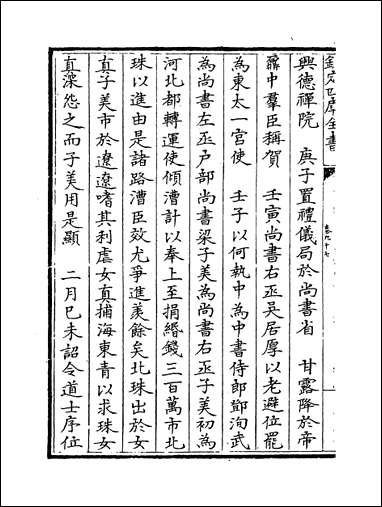 欽定四庫全書
卷九十七
興德禪院　庚子置禮儀局於尚書省　甘露降於帝
鼐中羣臣稱賀　壬寅尚書右丞吳居厚以老避位罷
為東太一宫使　壬子以何執中為中書侍郎鄧洵武
為尚書左丞戸部尚書梁子美為尚書右丞子美初為
河北都轉運使傾漕計以奉上至捐緡錢三百萬市北
珠以進由是諸路漕臣效尤爭進羨餘矣北珠出於女
真子美市於遼遼嗜其利虐女真捕海東青以求珠女
真深怨之而子美用是顯　二月已未詔令道士序位